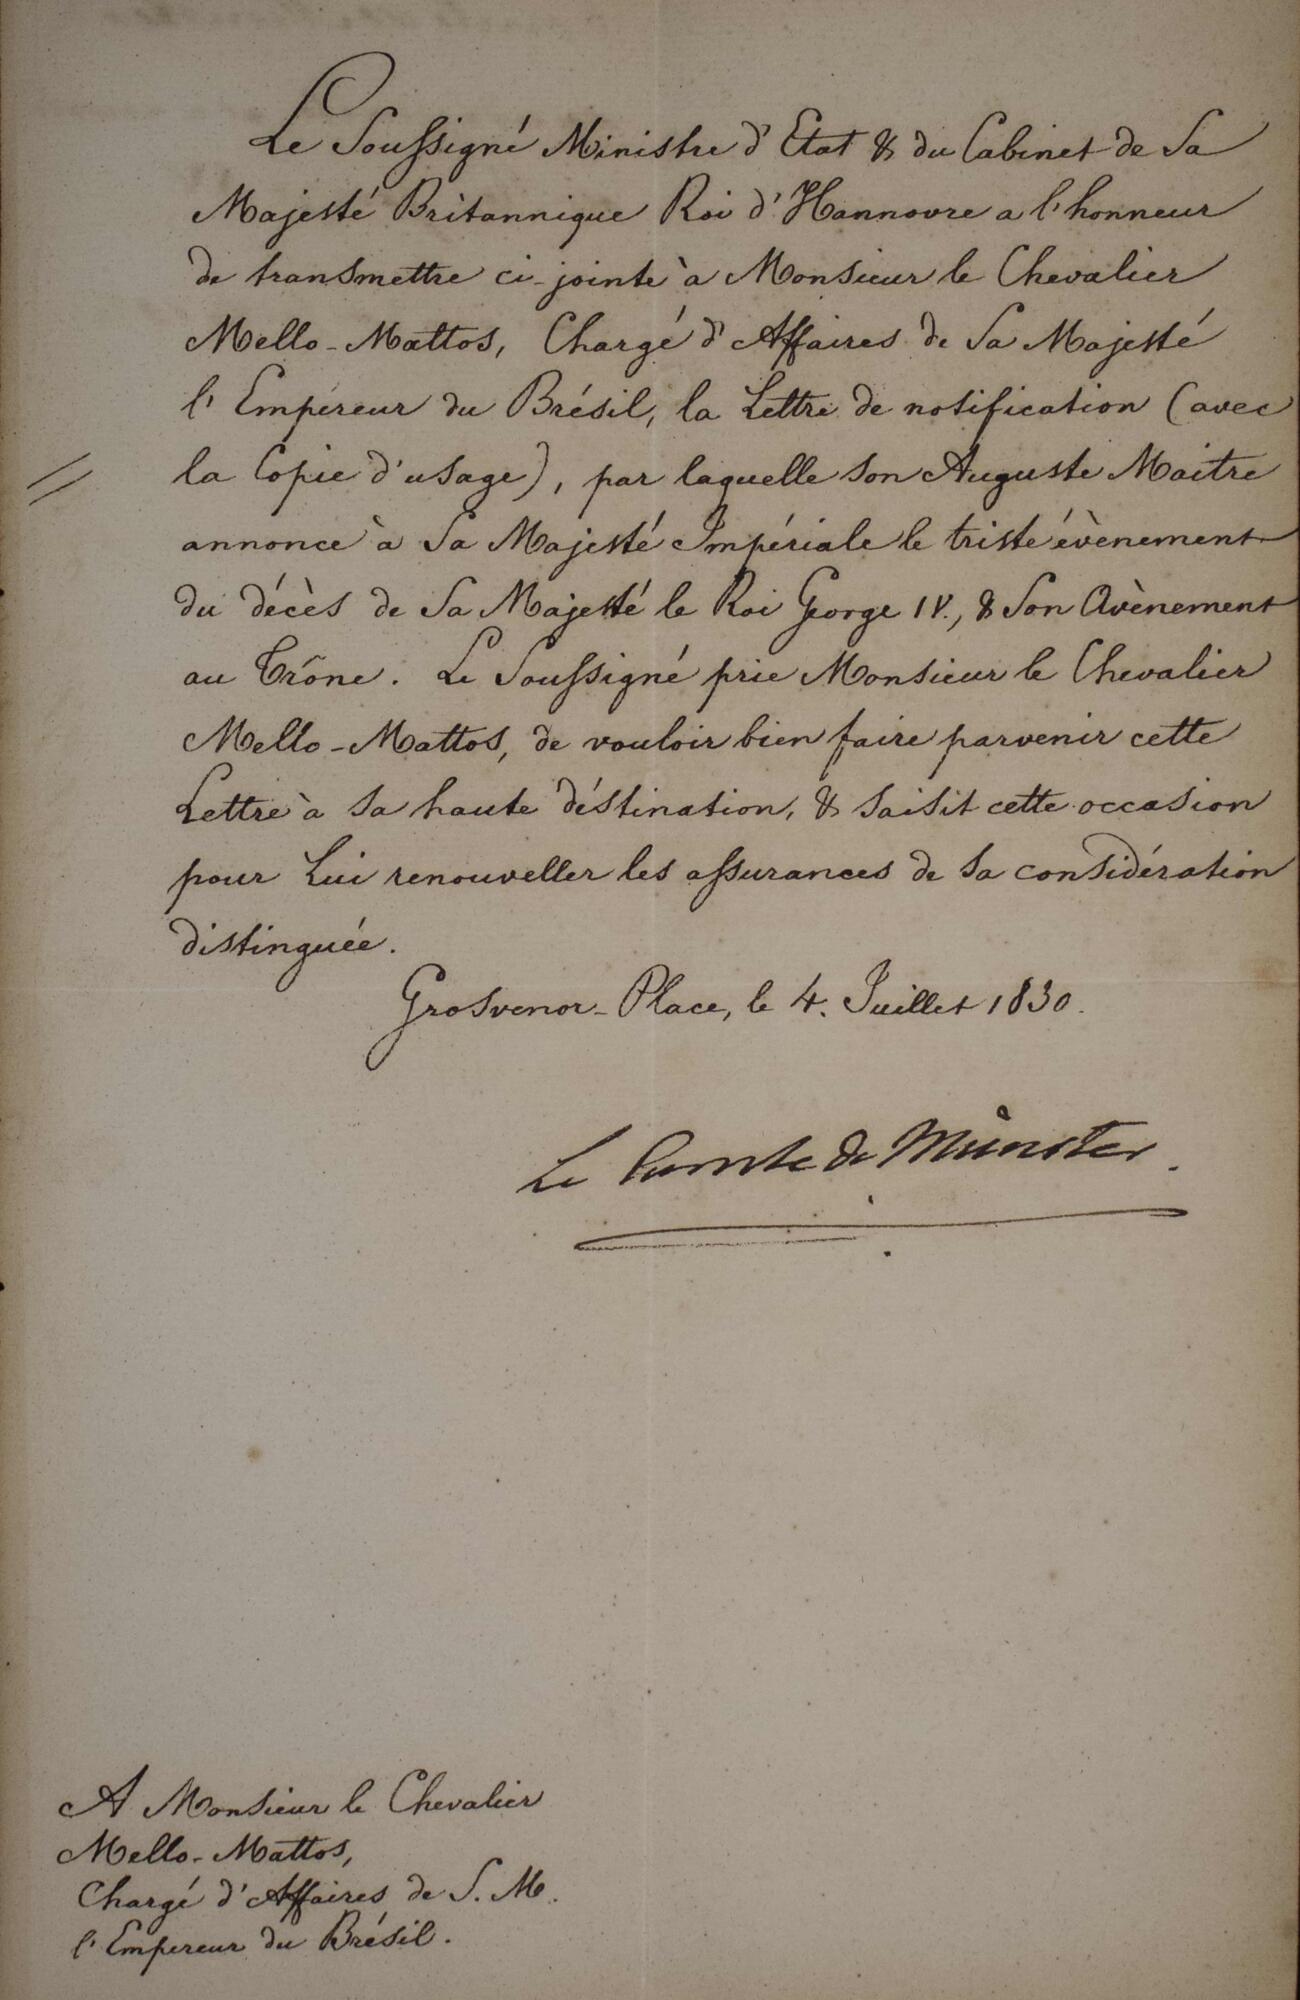 Le Soussigné Ministre d'Etat & du Cabinet de Sa
Majesté Britannique Roi d'Hannovre a l'honneur
de transmettre ci-jointe à Monsieur le Chevalier
Mello-Mattos, Chargé d'Affaires de Sa Majesté
l'Empereur du Brésil, la Lettre de notification (avec
la Copie d'usage), par laquelle son Auguste Maitre
annonce à Sa Majesté Impériale le triste évènement
du décès de Sa Majesté le Roi George IV., & Son Avènement
au Trône. Le Soussigné prie Monsieur le Chevalier
Mello-Mattos, de vouloir bien faire parvenir cette
Lettre à sa haute déstination, & saisit cette occasion
pour Lui renouveller les assurances de sa considération
distinguée.
Grosvenor-Place, le 4. Juillet 1830.
Le Comte de Münster.
A Monsieur le Chevalier
Mello-Mattos,
Chargé d'Affaires de S. M.
l'Empereur du Brésil.